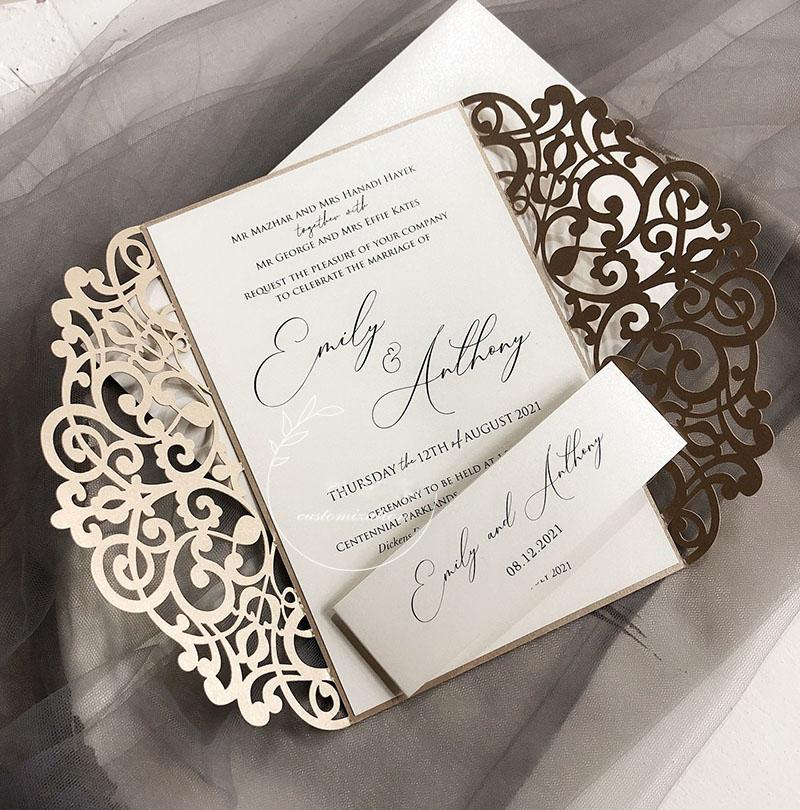 MR MAZHAR AND MRS HANADI HAYEK
together with
MR GEORGE AND MRS EFFIE KATES
REQUEST THE PLEASURE OF YOUR COMPANY
TO CELEBRATE THE MARRIAGE OF
Emily
&
Anthony
THURSDAY the 12TH of AUGUST 2021
CEREMONY TO BE HELD AT
CENTENNIAL PARKLANDS
Dickens
Emily and Anthony
08.12.2021
2021